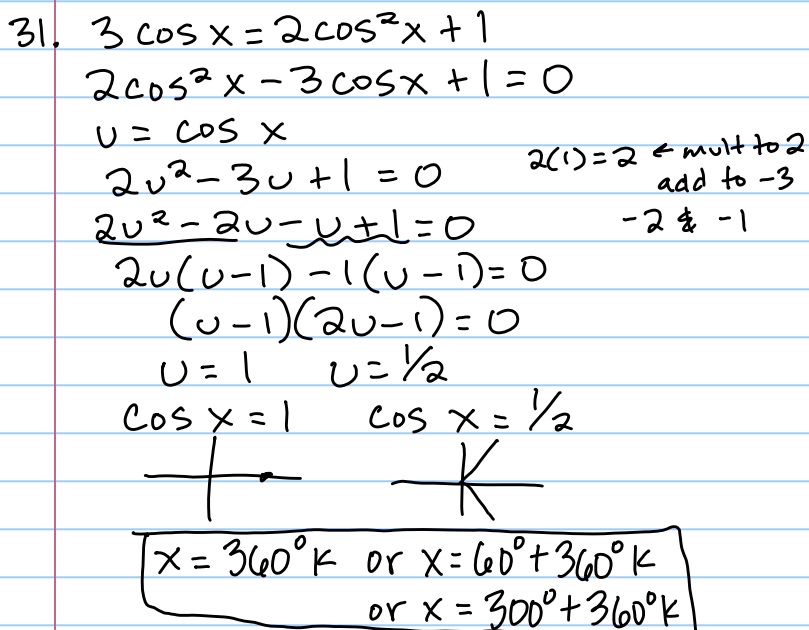 31. 3 cos x = 2cos²x + 1
2cos² x - 3cosx + 1 = 0
u = cos x
2(1) = 2 ← mult to 2
add to -3
-2 & -1
2u² - 3u + 1 = 0
2u² - 2u - u + 1 = 0
2u(u-1) - 1(u-1) = 0
(u-1)(2u-1) = 0
u = 1 u = 1/2
cos x = 1 cos x = 1/2
x = 360°k or x = 60° + 360°k
or x = 300° + 360°k